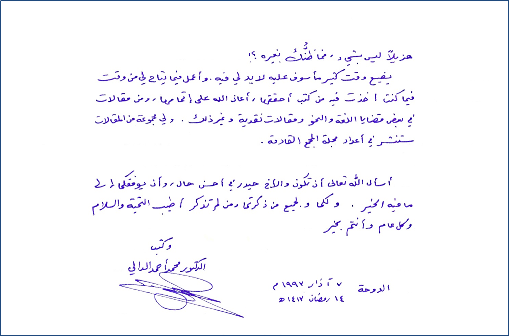 هزيلاً ليس بشيء، فما ظنُّك بغيره ؟!
يضيع وقت كثير مأسوف عليه لا يد لي فيه. وأعمل فيما يتاح لي من وقت
فيما كنت أخذت فيه من كتب أحققها، أعان الله على إتمامها، ومن مقالات
في بعض قضايا اللغة والنحو ومقالات نقدية وغير ذلك. ولي مجموعة من المقالات
ستنشر في أعداد مجلة المجمع القادمة.
أسأل الله تعالى أن تكون والأخ حيدر في أحسن حال، وأن يوفقكما إلى
ما فيه الخير. ولكما وللجميع من ذكرتما ومن لم تذكر أطيب التحية والسلام
وكل عام وأنتم بخير
وكتب
الدكتور محمد أحمد الدالي
الدوحة ٧ آذار ١٩٩٧ م
١٤ رمضان ١٤١٧ هـ